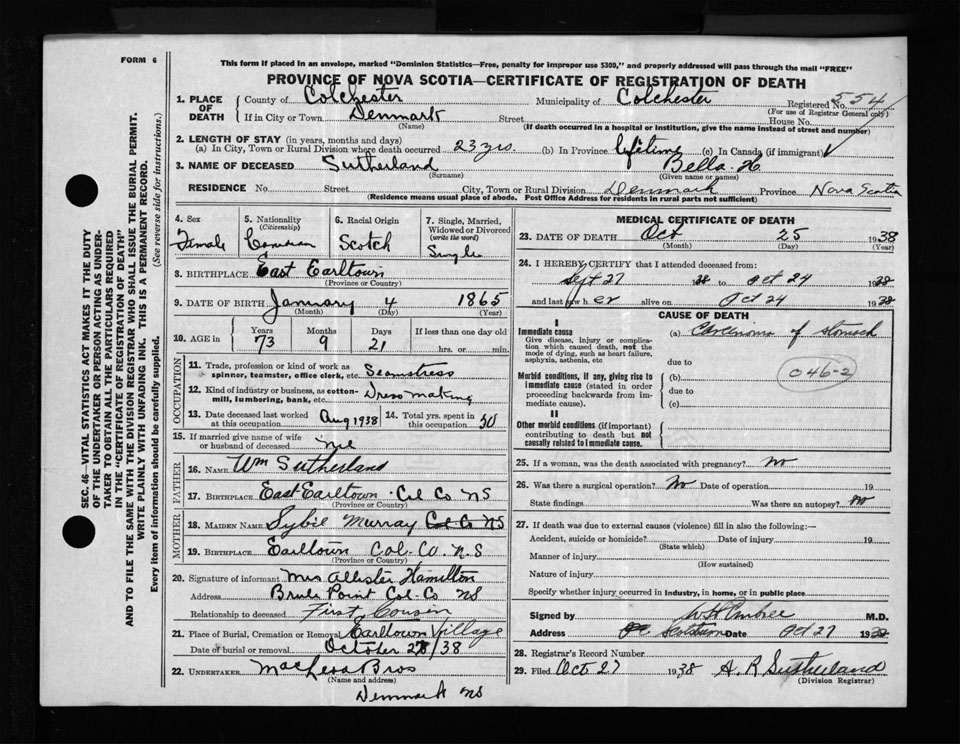 FORM 6
This form if placed in an envelope, marked "Dominion Statistics—Free, penalty for improper use $300," and properly addressed will pass through the mail "FREE"
PROVINCE OF NOVA SCOTIA—CERTIFICATE OF REGISTRATION OF DEATH
1. PLACE OF DEATH County of Colchester Municipality of Colchester Registered No. 554
(For use of Registrar General only)
If in City or Town Denmark Street House No.
(Name) (If death occurred in a hospital or institution, give the name instead of street and number)
2. LENGTH OF STAY (in years, months and days)
(a) In City, Town or Rural Division where death occurred 23 yrs. (b) In Province lifetime (c) In Canada (if immigrant)
3. NAME OF DECEASED Sutherland Bella H
(Surname) (Given name or names)
RESIDENCE No. Street City, Town or Rural Division Denmark Province Nova Scotia
(Residence means usual place of abode. Post Office Address for residents in rural parts not sufficient)
4. Sex Female
5. Nationality (Citizenship) Canadian
6. Racial Origin Scotch
7. Single, Married, Widowed or Divorced (write the word) Single
8. BIRTHPLACE East Earltown
(Province or Country)
9. DATE OF BIRTH January 4 1865
(Month) (Day) (Year)
10. AGE in Years 73 Months 9 Days 21 If less than one day old hrs. or min.
OCCUPATION
11. Trade, profession or kind of work as spinner, teamster, office clerk, etc. Seamstress
12. Kind of industry or business, as cotton-mill, lumbering, bank, etc. Dress making
13. Date deceased last worked at this occupation Aug 1938
14. Total yrs. spent in this occupation 50
15. If married give name of wife or husband of deceased nil
FATHER
16. NAME Wm Sutherland
17. BIRTHPLACE East Earltown Col Co NS
(Province or Country)
MOTHER
18. MAIDEN NAME Sybil Murray Col Co NS
19. BIRTHPLACE Earltown Col. Co. N.S
(Province or Country)
20. Signature of informant Mrs Allister Hamilton
Address Brule Point Col-Co NS
Relationship to deceased First Cousin
21. Place of Burial, Cremation or Removal Earltown Village
Date of burial or removal October 28/38
22. UNDERTAKER Bros
(Name and address)
Denmark NS
MEDICAL CERTIFICATE OF DEATH
23. DATE OF DEATH Oct 25 1938
(Month) (Day)
24. I HEREBY CERTIFY that I attended deceased from:
Sept 27 38 to Oct 24 1938
and last saw her alive on Oct 24 1938
CAUSE OF DEATH
I
Immediate cause (a) Carcinoma of stomach
Give disease, injury or complication which caused death, not the mode of dying, such as heart failure, asphyxia, asthenia, etc
due to
Morbid conditions, if any, giving rise to immediate cause (stated in order proceeding backwards from immediate cause). (b) 046-2
due to
(c)
II
Other morbid conditions (if important) contributing to death but not causally related to immediate cause.
25. If a woman, was the death associated with pregnancy? No
26. Was there a surgical operation? No Date of operation 19
State findings Was there an autopsy? No
27. If death was due to external causes (violence) fill in also the following:—
Accident, suicide or homicide? Date of injury 19
(State which)
Manner of injury
(How sustained)
Nature of injury
Specify whether injury occurred in industry, in home, or in public place
Signed by M.D.
Address Date Oct 27 1938
28. Registrar's Record Number
29. Filed Oct 27 1938 A. R Sutherland
(Division Registrar)
SEC. 46—VITAL STATISTICS ACT MAKES IT THE DUTY
OF THE UNDERTAKER OR PERSON ACTING AS UNDER-
TAKER TO OBTAIN ALL THE PARTICULARS REQUIRED
IN THE "CERTIFICATE OF REGISTRATION OF DEATH"
AND TO FILE THE SAME WITH THE DIVISION REGISTRAR WHO SHALL ISSUE THE BURIAL PERMIT.
WRITE PLAINLY WITH UNFADING INK. THIS IS A PERMANENT RECORD.
Every item of information should be carefully supplied. (See reverse side for instructions.)